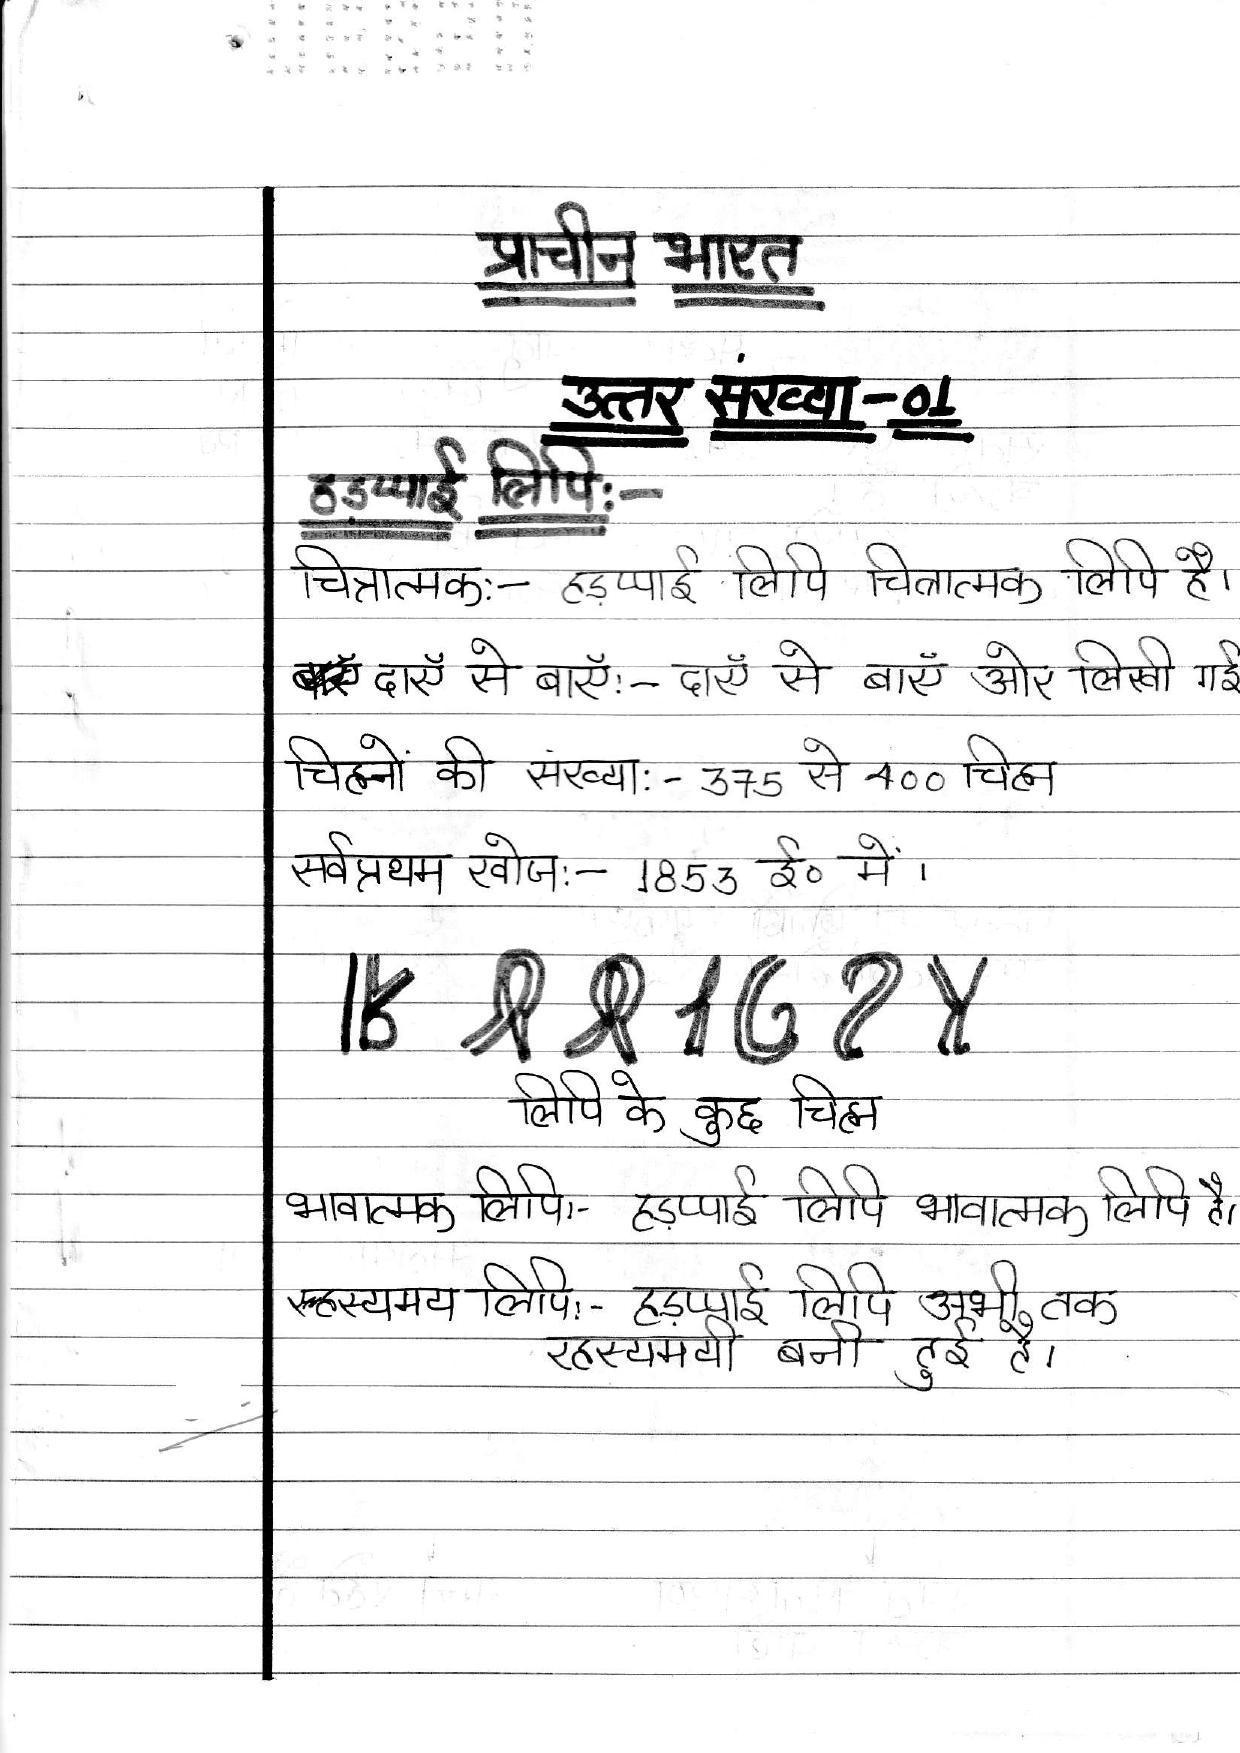 प्राचीन भारत
उत्तर संख्या-01
हड़प्पाई लिपि:-
चित्रात्मक:- हड़प्पाई लिपि चित्रात्मक लिपि है।
दाएँ से बाएँ:- दाएँ से बाएँ ओर लिखी गई
चिह्नों की संख्या:- 375 से 400 चिह्न
सर्वप्रथम खोज:- 1853 ई० में ।
लिपि के कुछ चिह्न
भावात्मक लिपि:- हड़प्पाई लिपि भावात्मक लिपि है।
रहस्यमय लिपि:- हड़प्पाई लिपि अभी तक
रहस्यमयी बनी हुई है।